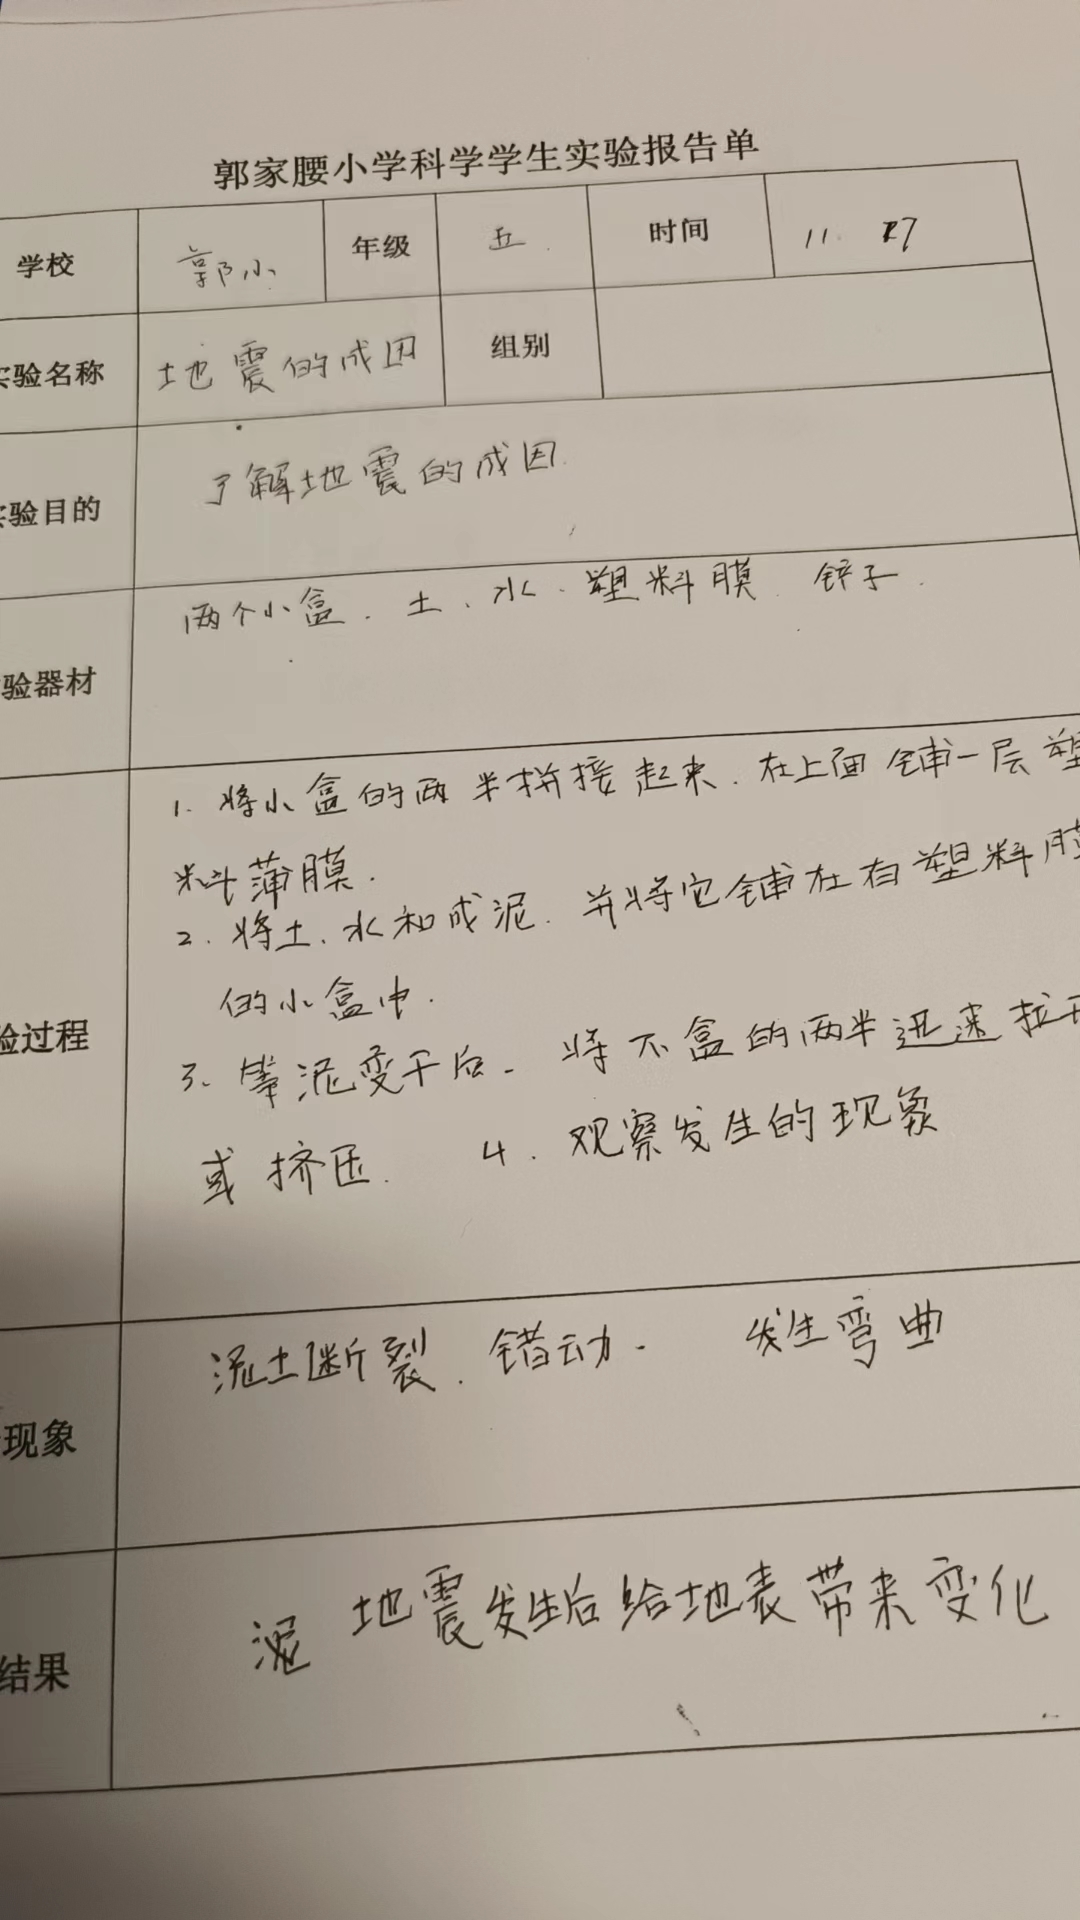 郭家腰小学科学学生实验报告单
学校 郭小 年级 五 时间 11.
实验名称 地震的成因 组别
实验目的 了解地震的成因.
验器材 两个小盒、土、水、塑料膜、铲子.
1. 将小盒的两半拼接起来.在上面铺一层塑
料薄膜.
2. 将土、水和成泥.并将它铺在有塑料膜
的小盒中.
验过程
3. 等泥变干后、将不盒的两半迅速拉开
或挤压. 4. 观察发生的现象
现象 泥土断裂、错动. 发生弯曲
结果 泥 地震发生后给地表带来变化